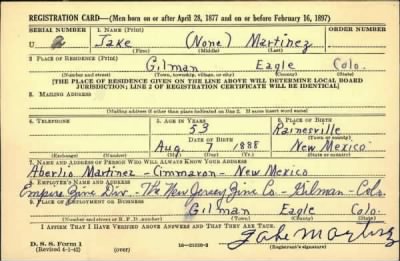 REGISTRATION CARD—(Men born on or after April 28, 1877 and on or before February 16, 1897)
SERIAL NUMBER 1. NAME (Print) ORDER NUMBER
U Jake (None) Martinez
(First) (Middle) (Last)
2. PLACE OF RESIDENCE (Print)
Gilman Eagle Colo.
(Number and street) (Town, township, village, or city) (County) (State)
[THE PLACE OF RESIDENCE GIVEN ON THE LINE ABOVE WILL DETERMINE LOCAL BOARD
JURISDICTION; LINE 2 OF REGISTRATION CERTIFICATE WILL BE IDENTICAL]
3. MAILING ADDRESS
[Mailing address if other than place indicated on line 2. If same insert word same]
4. TELEPHONE 5. AGE IN YEARS 6. PLACE OF BIRTH
53 Rainesville
DATE OF BIRTH (Town or county)
Aug 7 1888 New Mexico
(Exchange) (Number) (Mo.) (Day) (Yr.) (State or country)
7. NAME AND ADDRESS OF PERSON WHO WILL ALWAYS KNOW YOUR ADDRESS
Aberlio Martinez - Cimmaron - New Mexico
8. EMPLOYER'S NAME AND ADDRESS
Empire Zinc Div. - The New Jersey Zinc Co - Gilman - Colo.
9. PLACE OF EMPLOYMENT OR BUSINESS
Gilman Eagle Colo.
(Number and street or R. F. D. number) (Town) (County) (State)
I AFFIRM THAT I HAVE VERIFIED ABOVE ANSWERS AND THAT THEY ARE TRUE.
D. S. S. Form 1
(Revised 4-1-42) (over) Jake Martinez
(Registrant's signature)